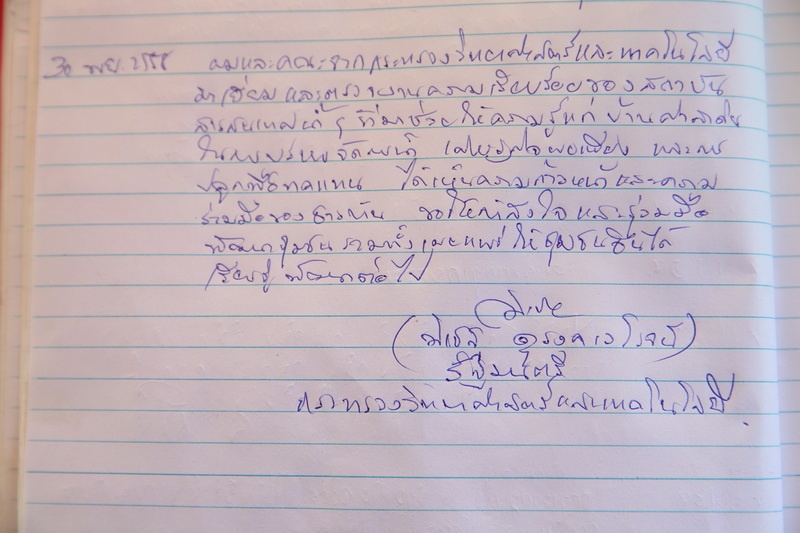 30 พ.ย. 2558 ผมและคณะจากกระทรวงวิทยาศาสตร์และเทคโนโลยี
มาเยี่ยมและตรวจงานความเรียบร้อยของสถาบัน
สารสนเทศ ที่มาช่วยให้ความรู้แก่ บ้านศาลาดิน
ในการบริหารจัดการน้ำ เศรษฐกิจพอเพียง และการ
ปลูกพืชทดแทน ได้เห็นความก้าวหน้าและความ
ร่วมมือของชาวบ้าน ขอให้กำลังใจ และร่วมมือ
พัฒนาชุมชน รวมทั้งเผยแพร่ให้ชุมชนอื่นได้
เรียนรู้ พัฒนาต่อไป
(พิเชฐ ดุรงคเวโรจน์)
รัฐมนตรี
กระทรวงวิทยาศาสตร์และเทคโนโลยี